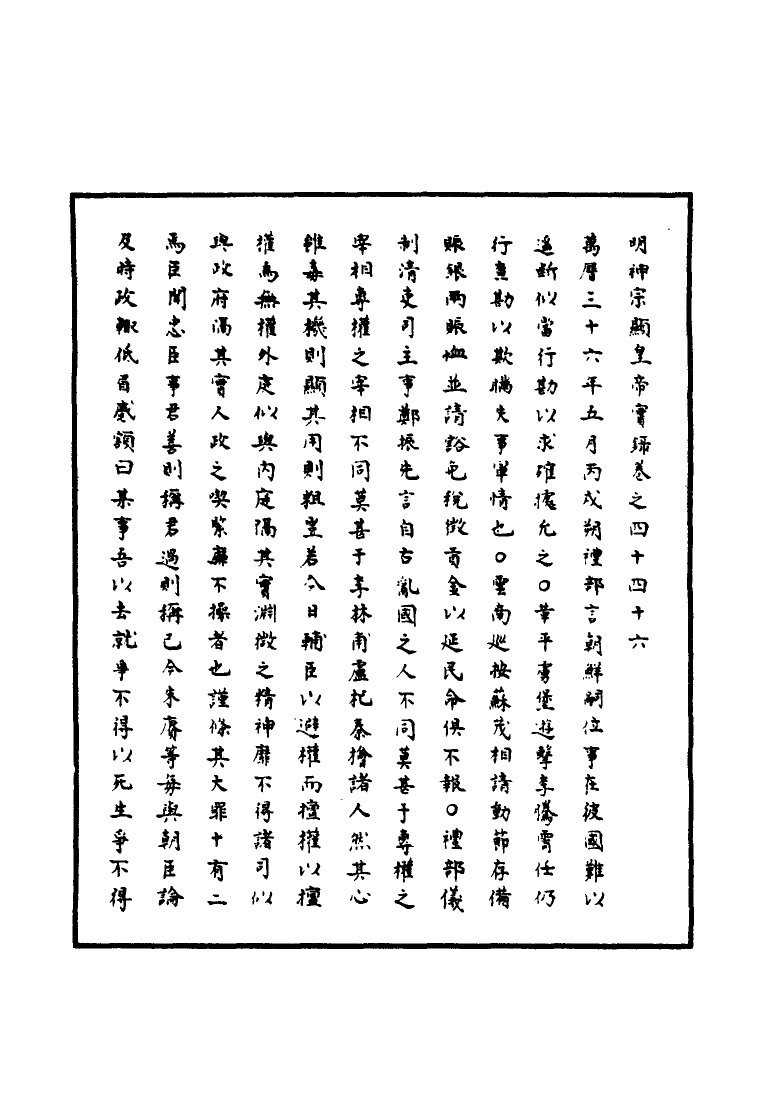 明神宗顯皇帝實錄卷之四十四十六
萬曆三十六年五月丙戌朔禮部言朝鮮嗣位事在彼國難以
遥斷似當行勘以求確據允之○革平虜堡遊擊李懋實任仍
行查勘以欺瞞失事軍情也○雲南巡按蘇茂相請動節存備
賑銀兩賑恤並請豁免稅徵貢金以延民命俱不報○禮部儀
制清吏司主事鄭振先言自古亂國之人不同莫甚于專權之
宰相專權之宰相不同莫甚于李林甫盧杞秦檜諸人然其心
雖毒其機則顯其用則粗豈若今日輔臣以避權而擅權以擅
權為無權外庭似與內庭隔其實淵微之精神靡不得諸司似
與政府隔其實人政之喫緊靡不操者也謹條其大罪十有二
焉臣聞忠臣事君善則稱君過則稱己今朱賡等每與朝臣論
及時政輒低眉蹙額曰某事吾以去就爭不得以死生爭不得